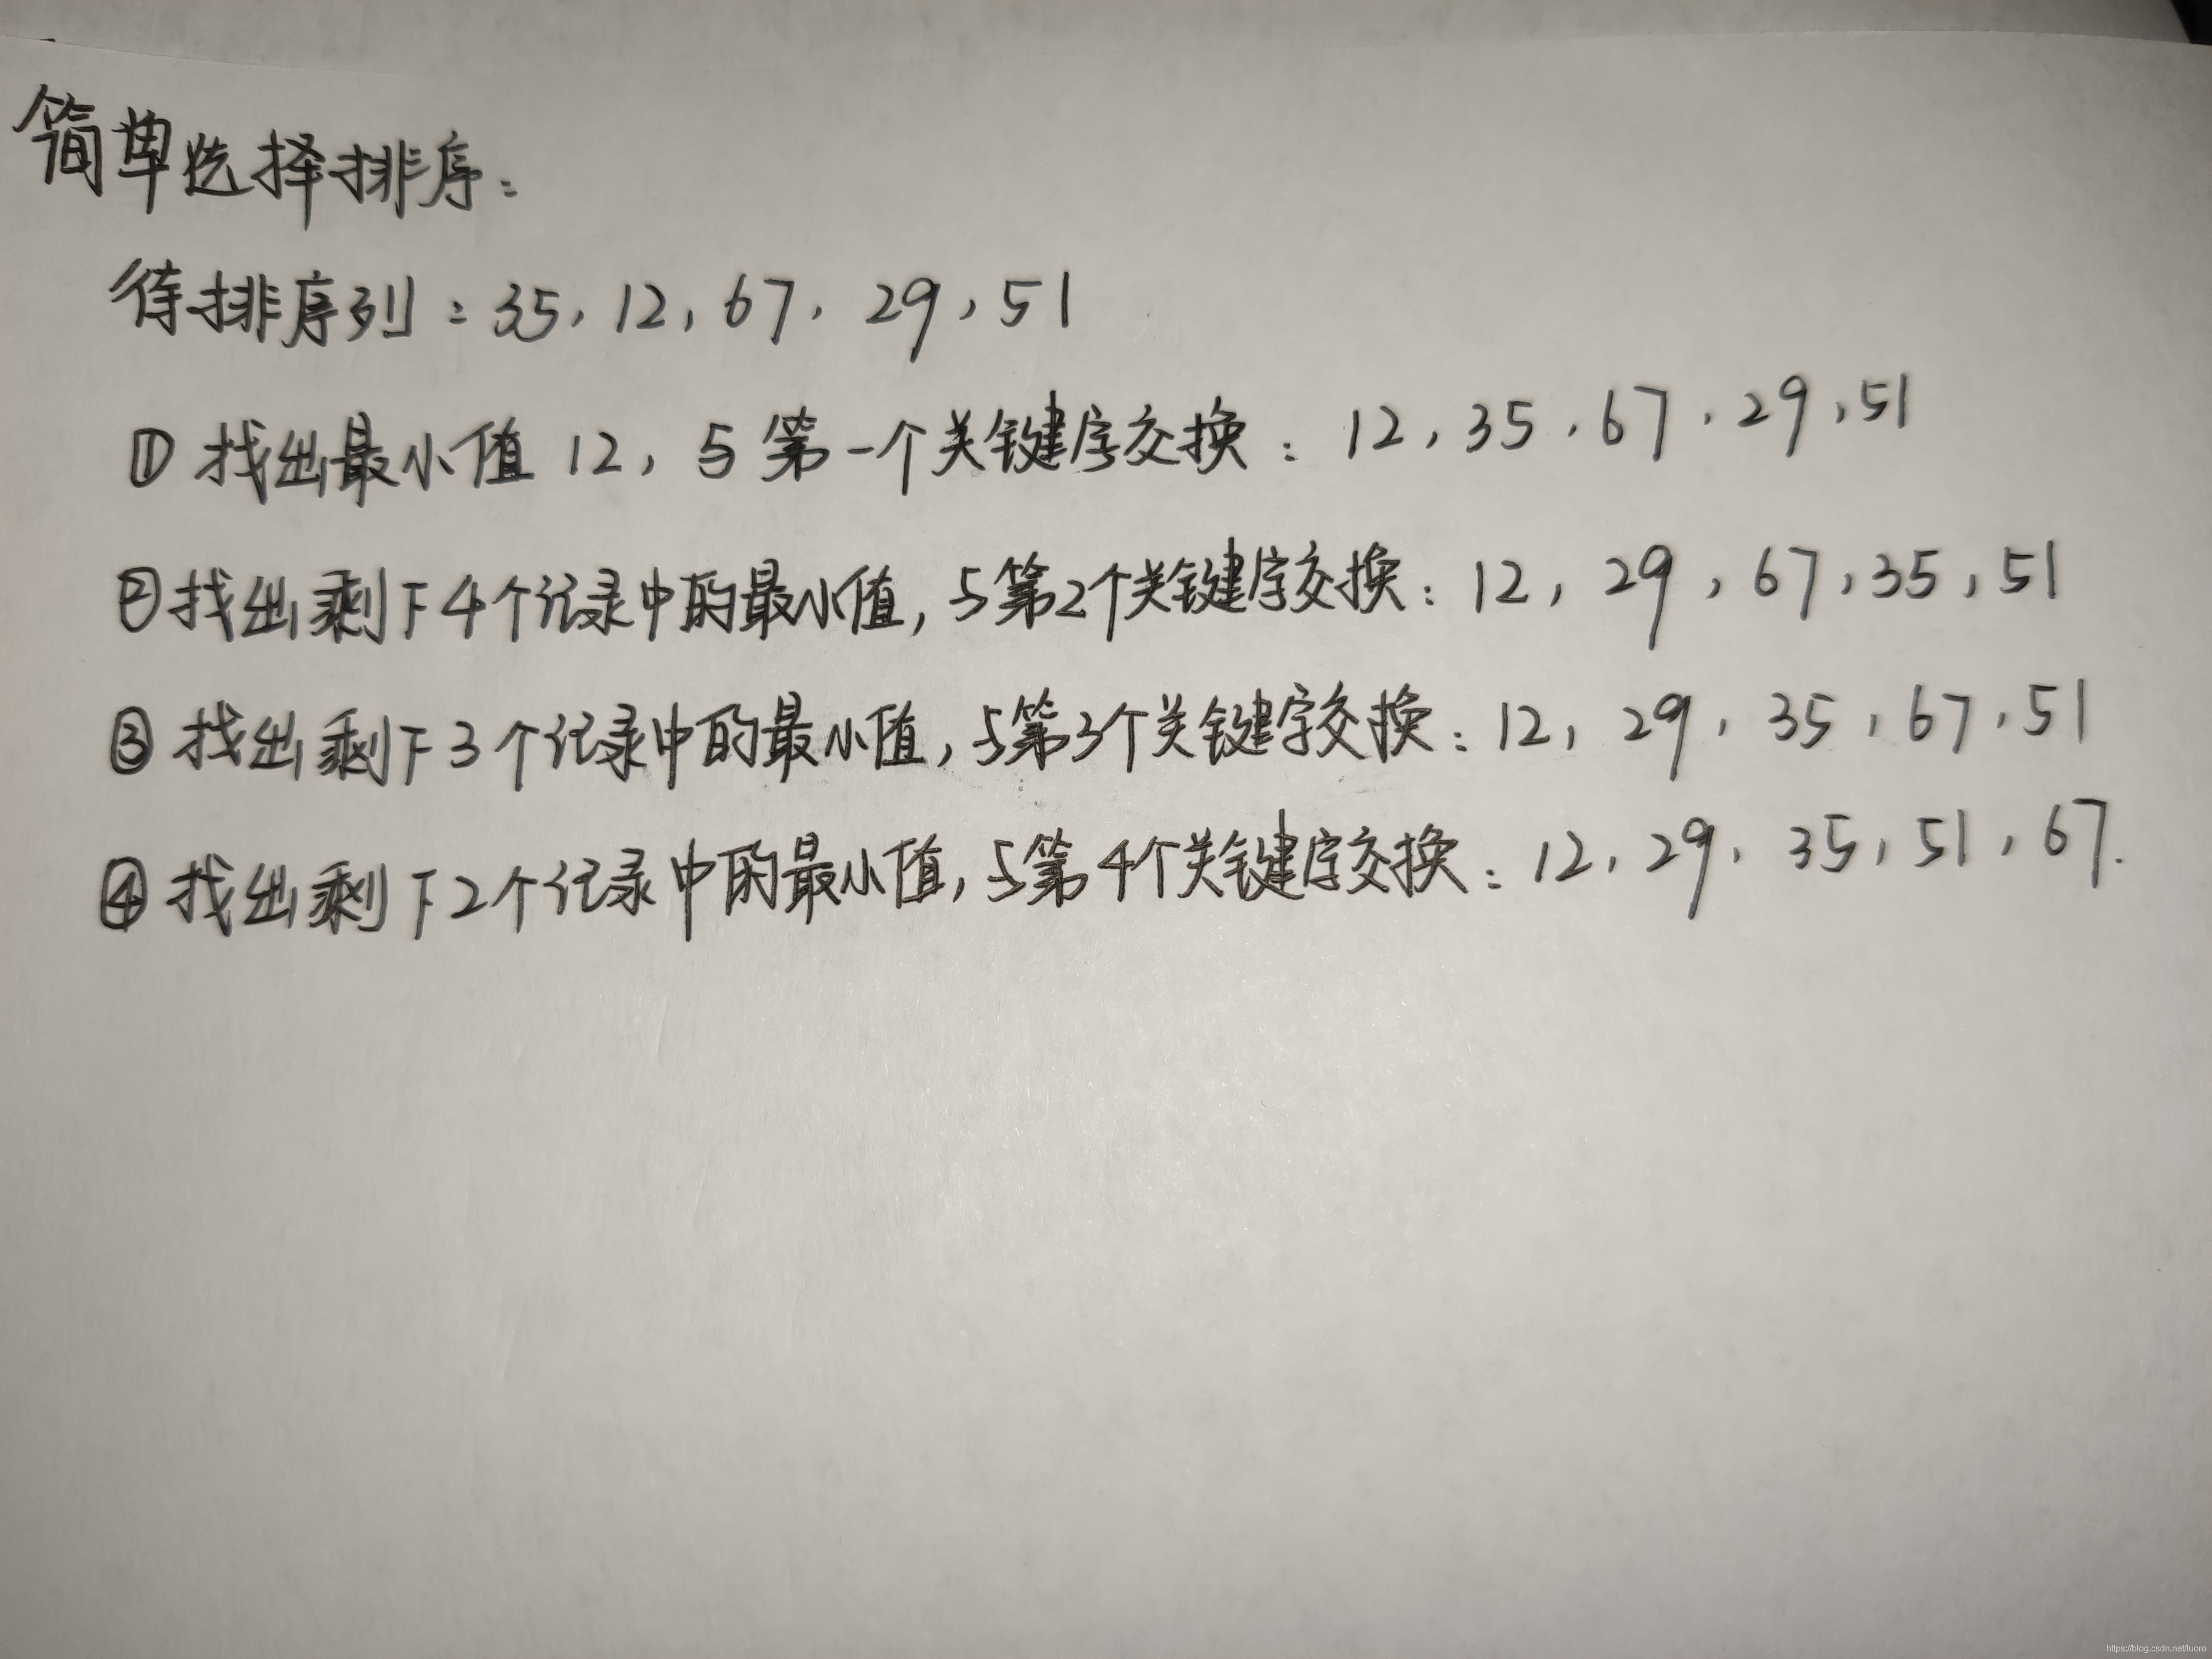 简单选择排序:
待排序列:35,12,67,29,51
① 找出最小值 12,与第一个关键字交换:12,35,67,29,51
② 找出剩下4个记录中的最小值,与第2个关键字交换:12,29,67,35,51
③ 找出剩下3个记录中的最小值,与第3个关键字交换:12,29,35,67,51
④ 找出剩下2个记录中的最小值,与第4个关键字交换:12,29,35,51,67.
https://blog.csdn.net/luoro